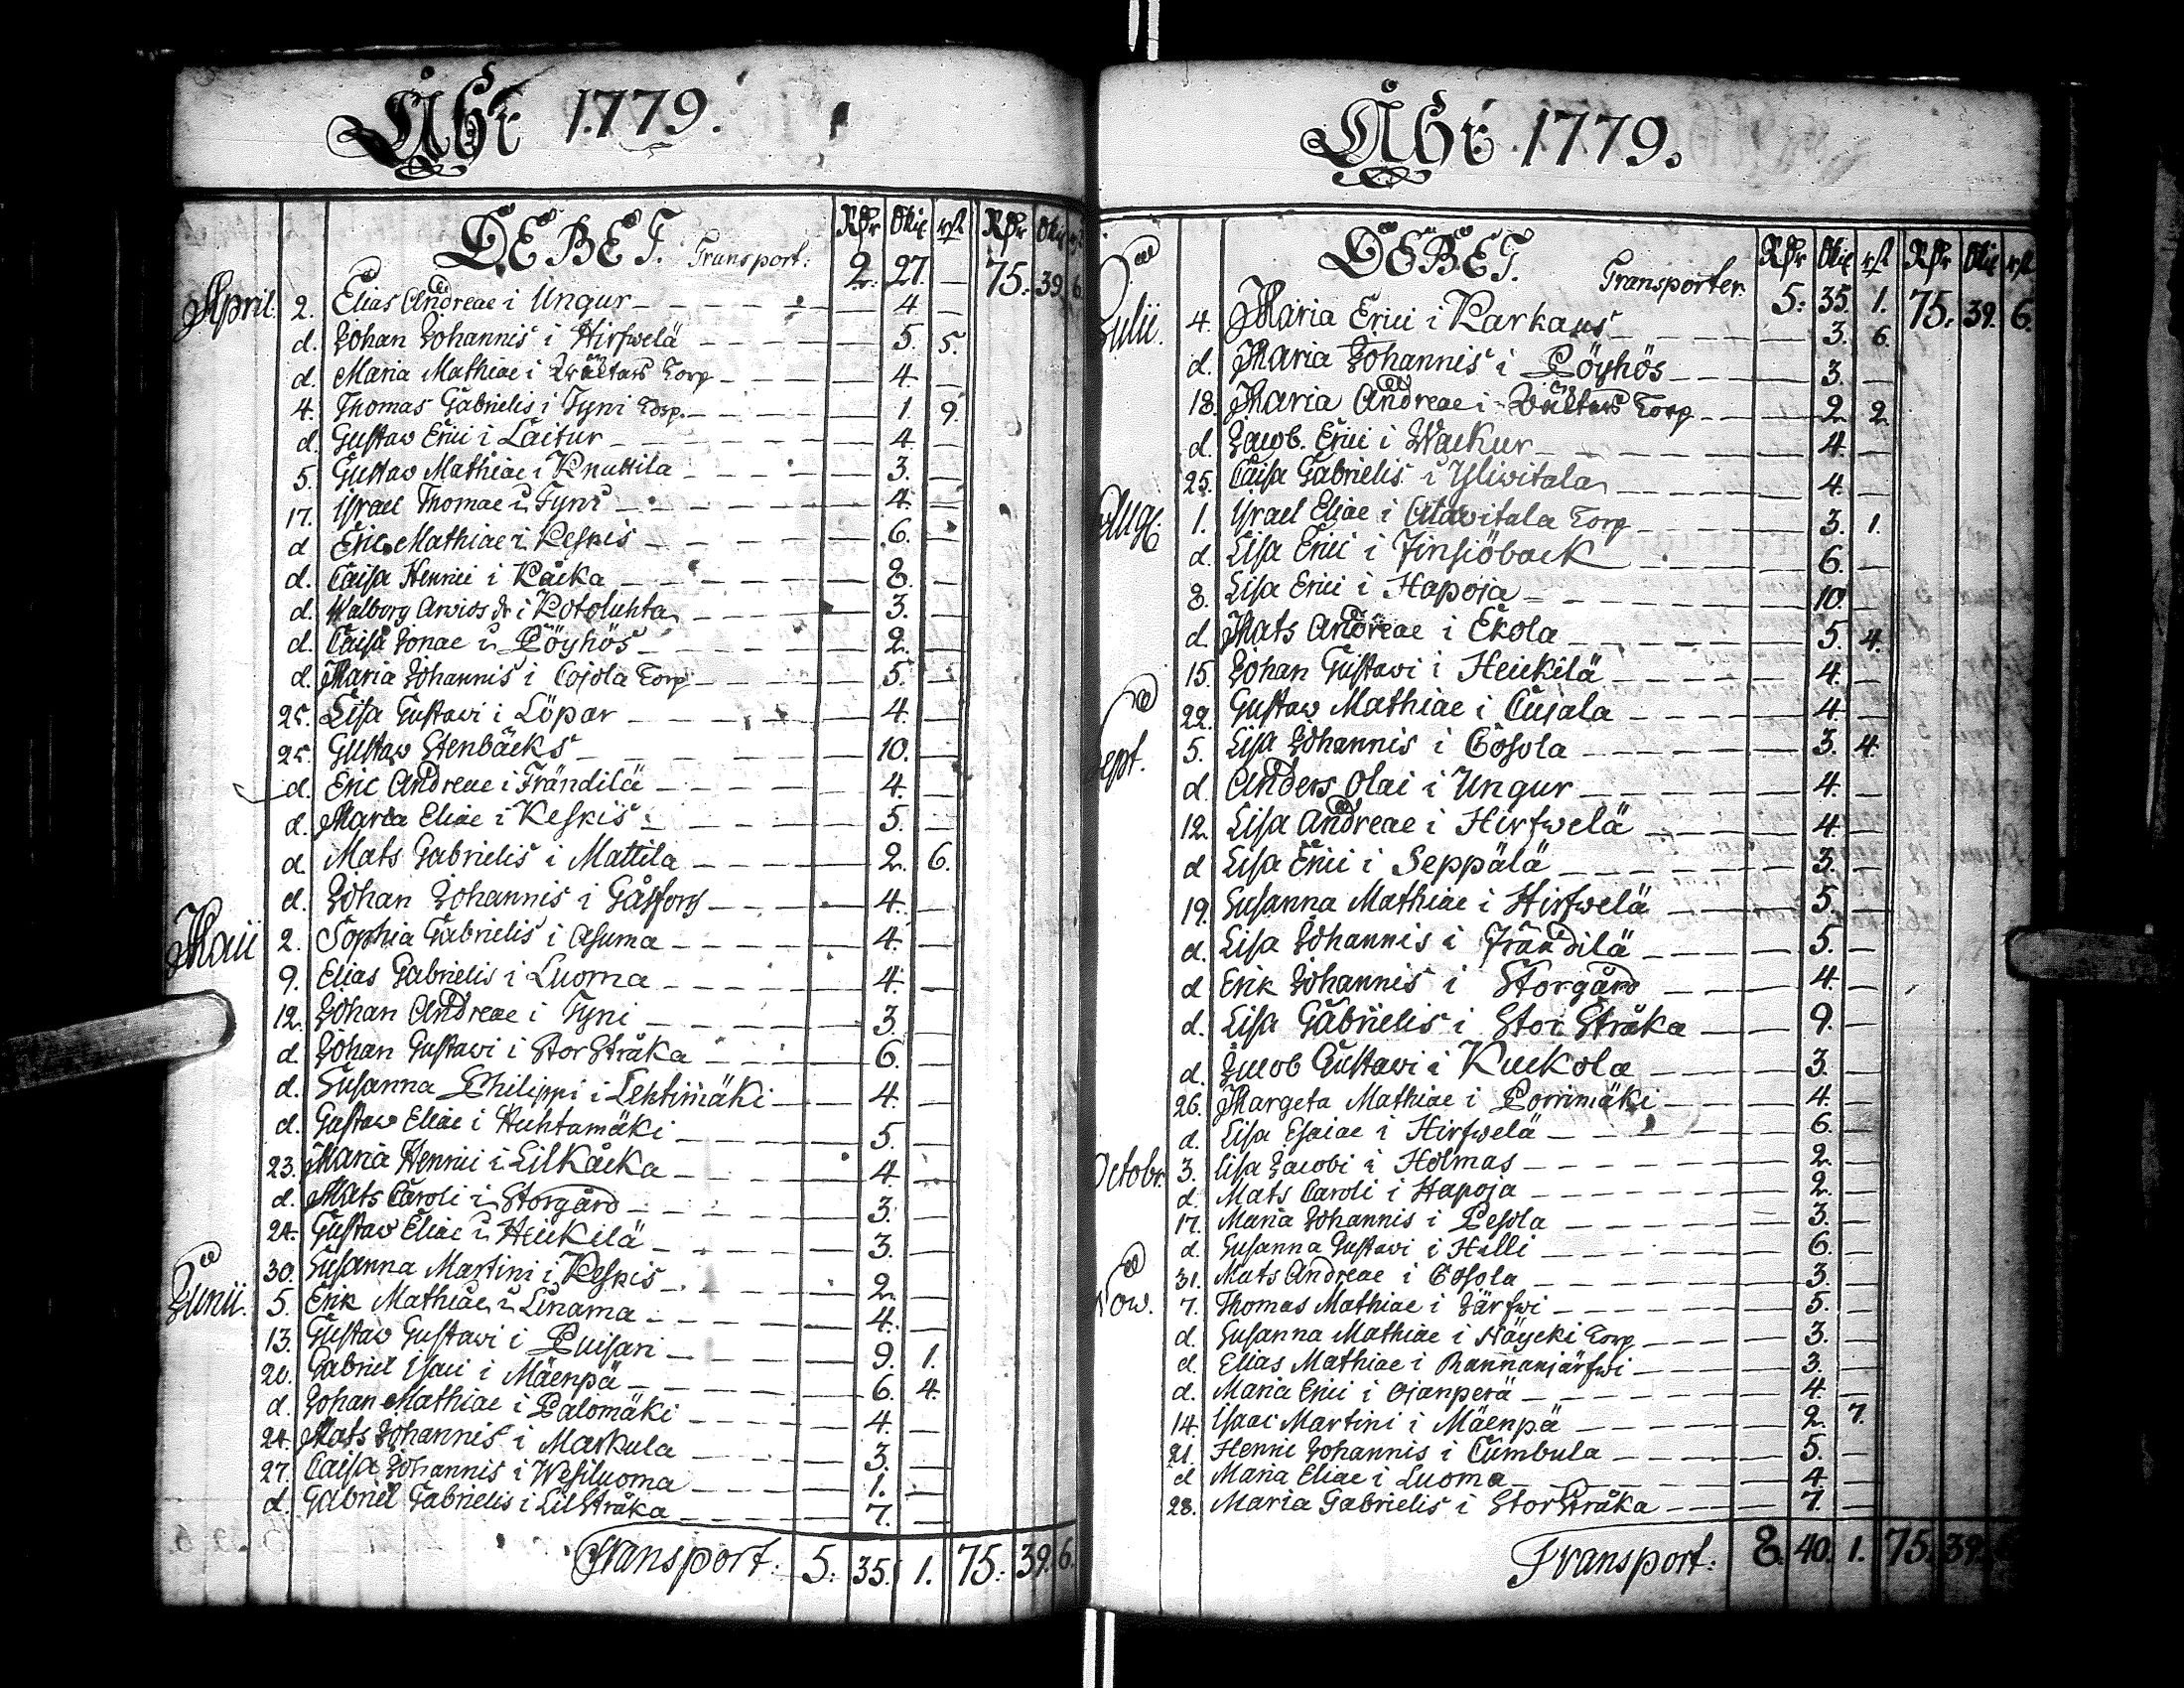 Åhr 1779.
DEBET. Transport: Rdr Skil rst Rdr Skil rst
2. 27. — 75. 39. 6.
April. 2. Elias Andreae i Ungur — 4. —
d. Johan Johannis i Hirfwelä — 5. 5.
d. Maria Mathiae i Torp — 4. —
4. Thomas Gabrielis i Tyni Torp. — 1. 9.
d. Gustav Erici i Laitur — 4. —
5. Gustav Mathiae i Knuttila — 3. —
17. Israel Thomae i Tyni — 4. —
d Eric Mathiae i Keskis — 6. —
d. Caisa Henrici i Kåcka — 8. —
d. Walborg Arvios dr i Potoluhta — 3. —
d. Caisa Jonae i Pöyhös — 2. —
d. Maria Johannis i Cojola Torp — 5. —
25. Lisa Gustavi i Löpar — 4. —
25. Gustav Stenbäcks — 10. —
d. Eric Andreae i Frändilä — 4. —
d. Maria Eliae i Keskis — 5. —
d. Mats Gabrielis i Mattila — 2. 6.
d. Johan Johannis i Gåsfors — 4. —
Maii 2. Sophia Gabrielis i Asuma — 4. —
9. Elias Gabrielis i Luoma — 4. —
12. Johan Andreae i Tyni — 3. —
d. Johan Gustavi i Stor Stråka — 6. —
d. Susanna Philippi i Lehtimäki — 4. —
d. Gustav Eliae i Huhtamäki — 5. —
23. Maria Henrici i Lilkåcka — 4. —
d. Mats Caroli i Storgård — 3. —
24. Gustav Eliae i Heickilä — 3. —
30. Susanna Martini i Keskis — 2. —
Junii. 5. Erik Mathiae i Linama — 4. —
13. Gustav Gustavi i Puisari — 9. 1.
20. Gabriel Isaci i Mäenpä — 6. 4.
d. Johan Mathiae i Palomäki — 4. —
24. Mats Johannis i Markula — 3. —
27. Caisa Johannis i Wesiluoma — 1. —
d. Gabriel Gabrielis i Lil Stråka — 7. —
Transport. 5. 35. 1. 75. 39. 6.
Åhr 1779.
DEBET. Transporter. Rdr Skil rst Rdr Skil rst
5. 35. 1. 75. 39. 6.
Julii. 4. Maria Erici i Karkaus — 3. 6.
d. Maria Johannis i Pöyhös — 3. —
18. Maria Andreae i Torp — 2. 2.
d. Jacob. Erici i Wackur — 4. —
25. Caisa Gabrielis i Ylivitala — 4. —
Aug. 1. Israel Eliae i Alavitala Torp — 3. 1.
d. Lisa Erici i Finsiöback — 6. —
8. Lisa Erici i Hapoja — 10. —
d. Mats Andreae i Ekola — 5. 4.
15. Johan Gustavi i Heickilä — 4. —
22. Gustav Mathiae i Cujala — 4. —
Sept. 5. Lisa Johannis i Cosola — 3. 4.
d. Anders Olai i Ungur — 4. —
12. Lisa Andreae i Hirfwelä — 4. —
d Lisa Erici i Seppälä — 3. —
19. Susanna Mathiae i Hirfwelä — 5. —
d. Lisa Johannis i Frändilä — 5. —
d Erik Johannis i Storgård — 4. —
d. Lisa Gabrielis i Stor Stråka — 9. —
d. Jacob Gustavi i Kuckola — 3. —
26. Margeta Mathiae i Porrimäki — 4. —
d. Lisa Esaiae i Hirfwelä — 6. —
Octobr. 3. Lisa Jacobi i Holmas — 2. —
d. Mats Caroli i Hapoja — 2. —
17. Maria Johannis i Pesola — 3. —
d. Susanna Gustavi i Hilli — 6. —
31. Mats Andreae i Cosola — 3. —
Now. 7. Thomas Mathiae i Järfwi — 5. —
d. Susanna Mathiae i Näycki Torp — 3. —
d Elias Mathiae i Rannanjärfwi — 3. —
d. Maria Erici i Ojanperä — 4. —
14. Isaac Martini i Mäenpä — 2. 7.
21. Henric Johannis i Cumbula — 5. —
d Maria Eliae i Luoma — 4. —
28. Maria Gabrielis i Stor Stråka — 7. —
Transport. 8. 40. 1. 75. 39.